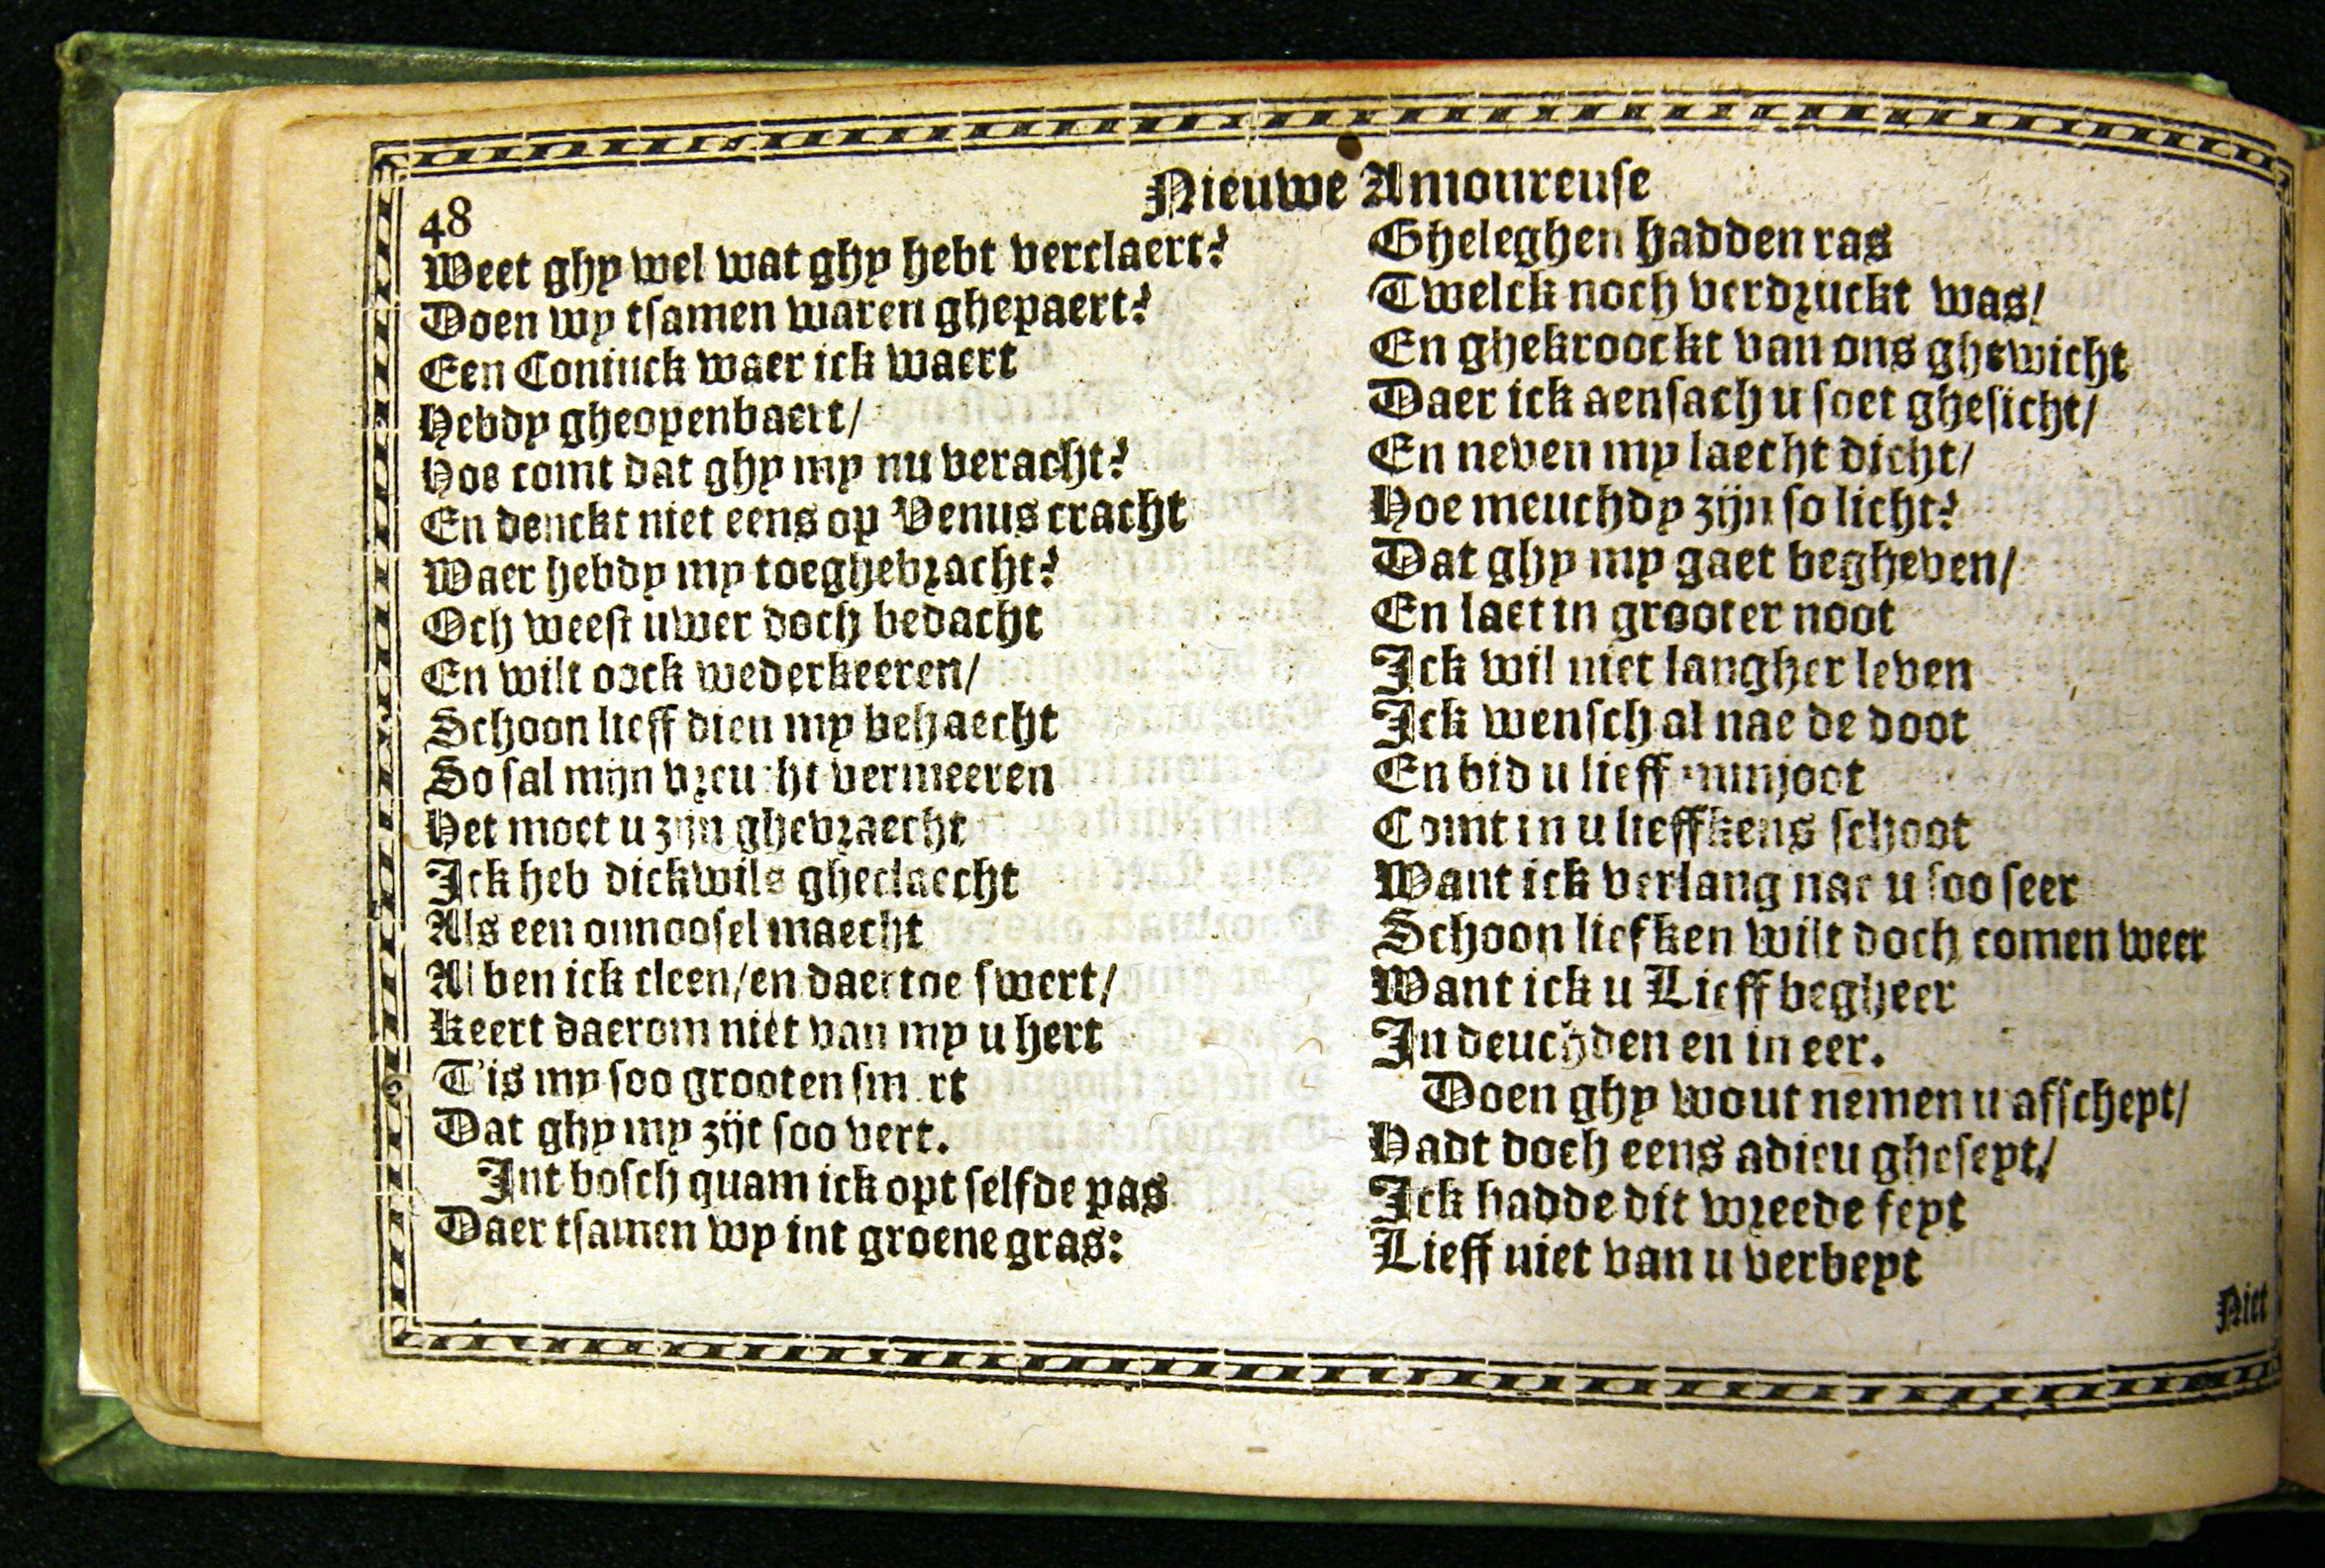 Nieuwe Amoureuse
48
Weet ghy wel wat ghy hebt verclaert?
Doen wy tsamen waren ghepaert?
Een Coninck waer ick waert
Hebdy gheopenbaert/
Hoe comt dat ghy my nu veracht?
En denckt niet eens op Venus cracht
Waer hebdy my toeghebracht?
Och weest uwer doch bedacht
En wilt oock wederkeeren/
Schoon lieff dien my behaecht
So sal mijn vreucht vermeeren
Het moet u zijn ghebraecht
Ick heb dickwils gheclaecht
Als een onnoosel maecht
Al ben ick cleen/en daertoe swert/
Keert daerom niet van my u hert
T'is my soo grooten sm rt
Dat ghy my zijt soo vert.
Int bosch quam ick opt selfde pas
Daer tsamen wy int groene gras:
Gheleghen hadden ras
Twelck noch verdruckt was/
En ghekroockt van ons ghewicht
Daer ick aensach u soet ghesicht/
En neven my laecht dicht/
Hoe meuchdy zijn so licht?
Dat ghy my gaet begheven/
En laet in grooter noot
Ick wil niet langher leven
Ick wensch al nae de doot
En bid u lieff minjoot
Comt in u lieffkens schoot
Want ick verlang nae u soo seer
Schoon liefken wilt doch comen weer
Want ick u Lieff begheer
In deuchden en in eer.
Doen ghy wout nemen u afscheyt/
Hadt doch eens adieu gheseyt/
Ick hadde dit wreede feyt
Lieff niet van u verbeyt
Niet